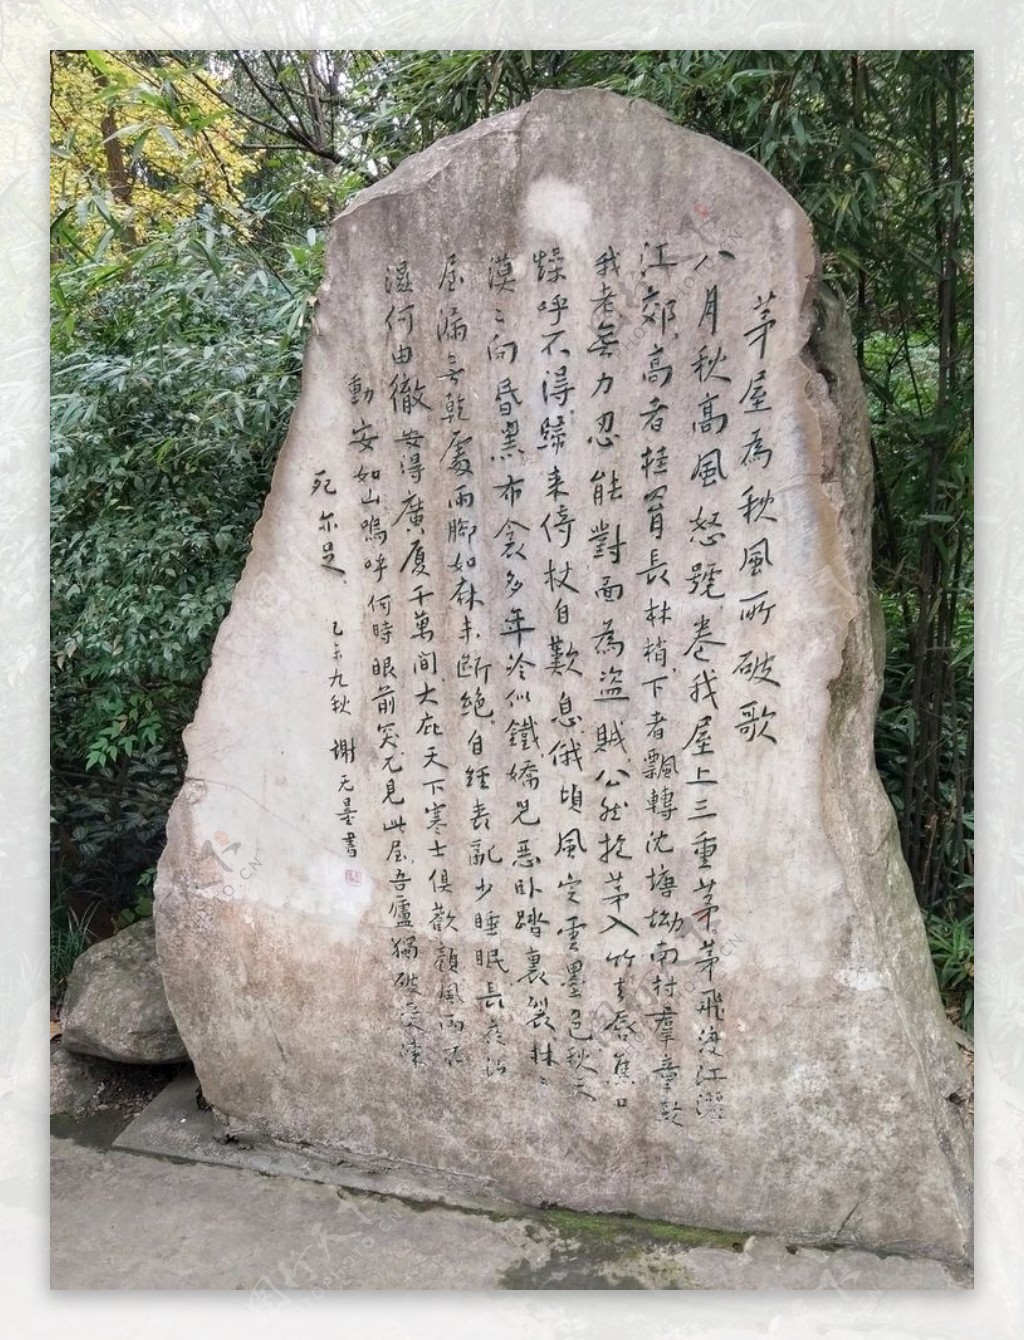 茅屋為秋風所破歌
八月秋高風怒號卷我屋上三重茅茅飛渡江灑
江郊高者挂罥長林梢下者飄轉沈塘坳南村羣童欺
我老無力忍能對面為盜賊公然抱茅入竹去唇焦口
燥呼不得歸來倚杖自歎息俄頃風定雲墨色秋天
漠〻向昏黑布衾多年冷似鐵嬌兒惡卧踏裏裂牀〻
屋漏无乾處雨腳如麻未斷絕自經喪亂少睡眠長夜沾
濕何由徹安得廣厦千萬間大庇天下寒士俱歡顏風雨不
動安如山嗚呼何時眼前突兀見此屋吾廬獨破受凍
死亦足 乙未九秋 謝无量書